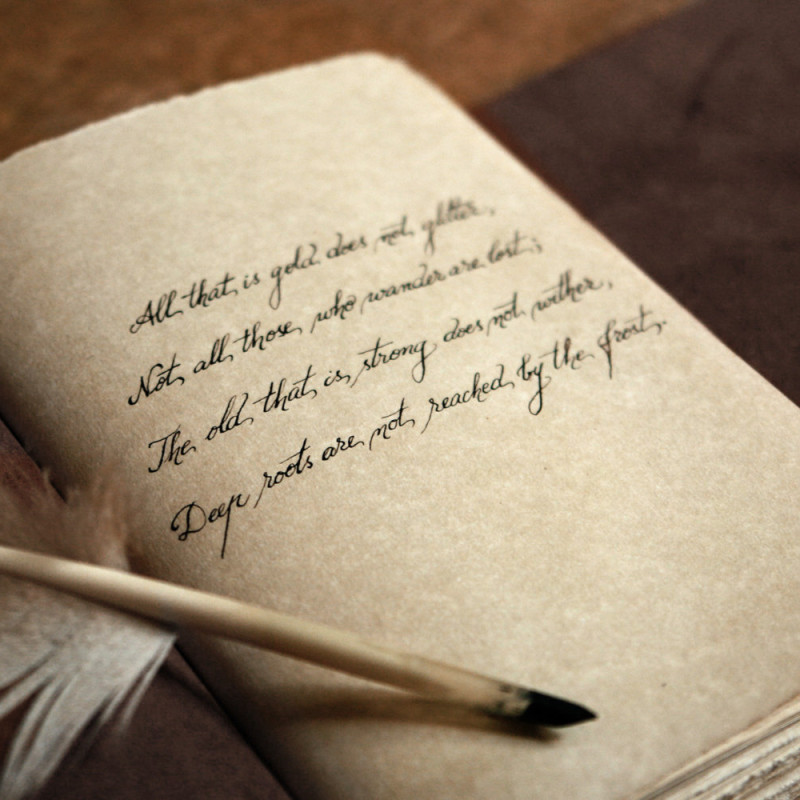 All that is gold does not glitter,
Not all those who wander are lost;
The old that is strong does not wither,
Deep roots are not reached by the frost.